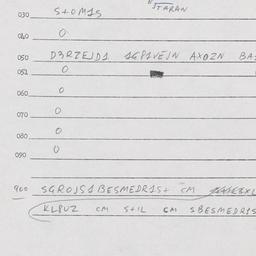 STARAN
030 S+OM1S
040 O
050 D3RZEJD1 1GP1VEJN AXOZN BA
051 O
060 O
070 O
080 O
090 O
900 SGROJS1BESMEDR1S+ CM
KLPUZ CM S+IL CM SBESMEDR1S